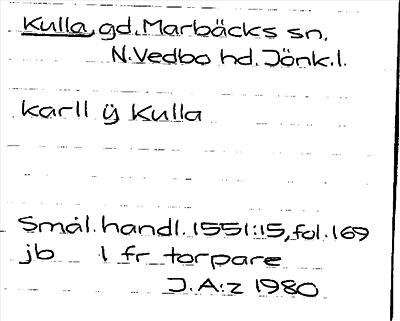 Kulla, gd. Marbäcks sn,
N.Vedbo hd. Jönk.l.
karll ÿ Kulla
Smål. handl. 1551:15, fol. 169
jb 1 fr torpare
J.A:z 1980